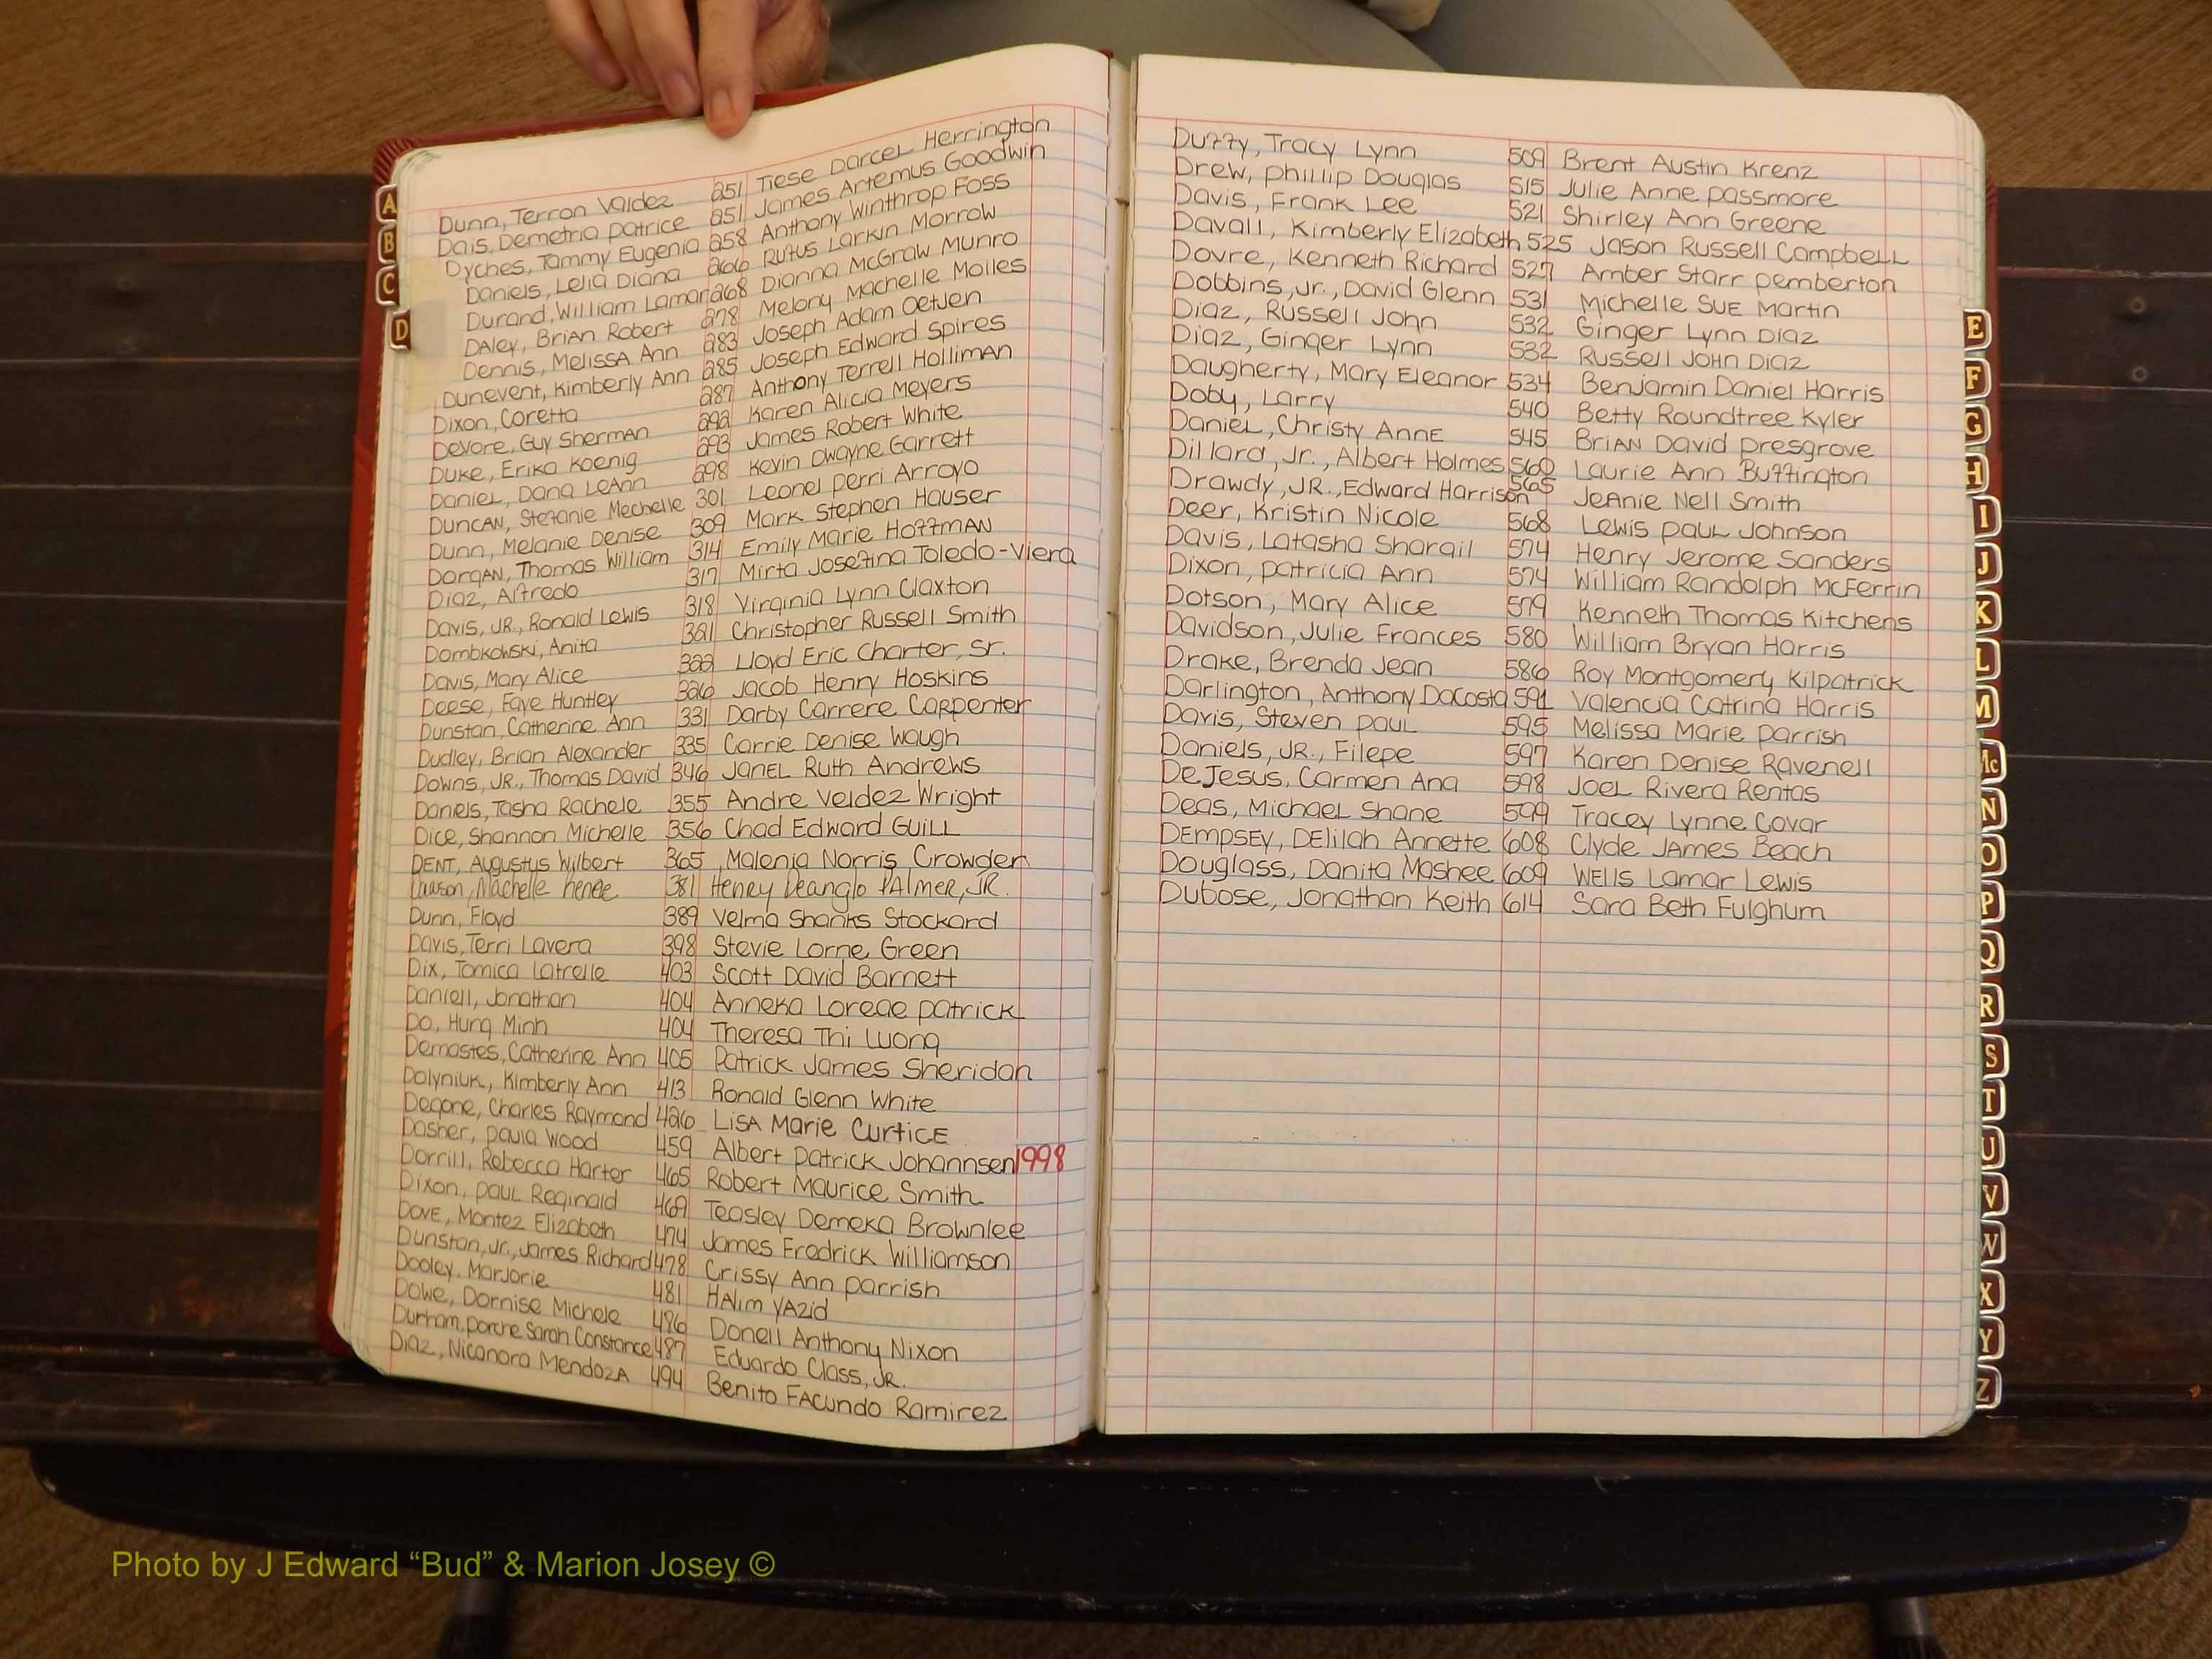 Dunn, Terron Valdez 251 Tiese Darcel Herrington
Dais, Demetria Patrice 251 James Artemus Goodwin
Dyches, Tammy Eugenia 258 Anthony Winthrop Foss
Daniels, Lelia Diana 266 Rufus Larkin Morrow
Durand, William Lamar 268 Dianna McGraw Munro
Daley, Brian Robert 278 Melony Machelle Moiles
Dennis, Melissa Ann 283 Joseph Adam Oetjen
Dunevent, Kimberly Ann 285 Joseph Edward Spires
Dixon, Coretta 287 Anthony Terrell Holliman
DeVore, Guy Sherman 292 Karen Alicia Meyers
Duke, Erika Koenig 293 James Robert White
Daniel, Dana LeAnn 298 Kevin Dwayne Garrett
Duncan, Stefanie Mechelle 301 Leonel Perri Arroyo
Dunn, Melanie Denise 309 Mark Stephen Hauser
Dorgan, Thomas William 314 Emily Marie Hoffman
Diaz, Alfredo 317 Mirta Josefina Toledo-Viera
Davis, Jr., Ronald Lewis 318 Virginia Lynn Claxton
Dombkowski, Anita 321 Christopher Russell Smith
Davis, Mary Alice 322 Lloyd Eric Charter, Sr.
Deese, Faye Huntley 326 Jacob Henry Hoskins
Dunstan, Catherine Ann 331 Darby Carrere Carpenter
Dudley, Brian Alexander 335 Carrie Denise Waugh
Downs, Jr., Thomas David 346 Janel Ruth Andrews
Daniels, Tasha Rachele 355 Andre Veldez Wright
Dice, Shannon Michelle 356 Chad Edward Guill
Dent, Augustus Wilbert 365 Malenia Norris Crowder
Machelle Renee 381 Henry Deanglo Palmer, Jr.
Dunn, Floyd 389 Velma Shanks Stockard
Davis, Terri Lavera 398 Stevie Lorne Green
Dix, Tomica Latrelle 403 Scott David Barnett
Daniell, Jonathan 404 Anneka Loreae Patrick
Do, Hung Minh 404 Theresa Thi Luong
Demastes, Catherine Ann 405 Patrick James Sheridan
Dolyniuk, Kimberly Ann 413 Ronald Glenn White
Degone, Charles Raymond 426 Lisa Marie Curtice
Dasher, Paula Wood 459 Albert Patrick Johannsen 1998
Dorrill, Rebecca Harter 465 Robert Maurice Smith
Dixon, Paul Reginald 469 Teasley Demeka Brownlee
Dove, Montez Elizabeth 474 James Fredrick Williamson
Dunstan, Jr., James Richard 478 Crissy Ann Parrish
Dooley, Marjorie 481 Halim Yazid
Dowe, Dornise Michele 486 Donell Anthony Nixon
Durham, Porche Sarah Constance 487 Eduardo Class, Jr.
Diaz, Nicanora Mendoza 494 Benito Facundo Ramirez
Duffy, Tracy Lynn 509 Brent Austin Krenz
Drew, Phillip Douglas 515 Julie Anne Passmore
Davis, Frank Lee 521 Shirley Ann Greene
Davall, Kimberly Elizabeth 525 Jason Russell Campbell
Dovre, Kenneth Richard 527 Amber Starr Pemberton
Dobbins, Jr., David Glenn 531 Michelle Sue Martin
Diaz, Russell John 532 Ginger Lynn Diaz
Diaz, Ginger Lynn 532 Russell John Diaz
Daugherty, Mary Eleanor 534 Benjamin Daniel Harris
Doby, Larry 540 Betty Roundtree Kyler
Daniel, Christy Anne 545 Brian David Presgrove
Dillard, Jr., Albert Holmes 560 Laurie Ann Buffington
Drawdy, Jr., Edward Harrison 565 Jeanie Nell Smith
Deer, Kristin Nicole 568 Lewis Paul Johnson
Davis, Latasha Sharail 574 Henry Jerome Sanders
Dixon, Patricia Ann 574 William Randolph McFerrin
Dotson, Mary Alice 579 Kenneth Thomas Kitchens
Davidson, Julie Frances 580 William Bryan Harris
Drake, Brenda Jean 586 Roy Montgomery Kilpatrick
Darlington, Anthony DaCosta 591 Valencia Catrina Harris
Davis, Steven Paul 595 Melissa Marie Parrish
Daniels, Jr., Filepe 597 Karen Denise Ravenell
DeJesus, Carmen Ana 598 Joel Rivera Rentas
Deas, Michael Shane 599 Tracey Lynne Covar
Dempsey, Delilah Annette 608 Clyde James Beach
Douglass, Danita Mashee 609 Wells Lamar Lewis
Dubose, Jonathan Keith 614 Sara Beth Fulghum
A
B
C
D
E
F
G
H
I
J
K
L
M
Mc
N
O
P
Q
R
S
T
U
V
W
X
Y
Z
Photo by J Edward “Bud” & Marion Josey ©